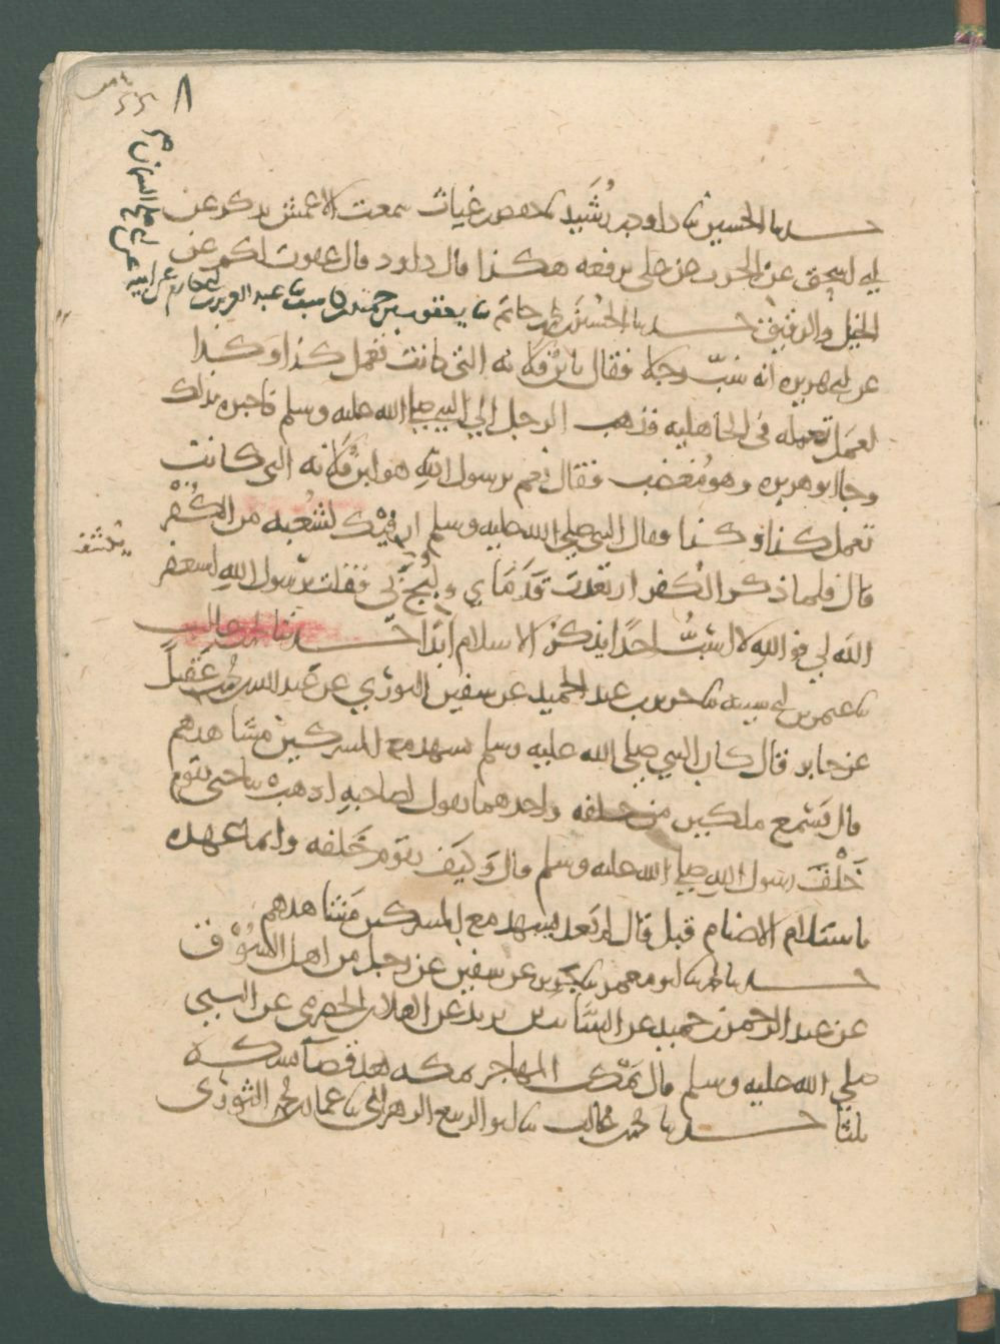 ٨
حدثنا الحسين نا داود بن رُشَيد نا حفص بن غياث سمعت الاعمش يذكر عن
ابي اسحق عن الحرث عن علي يرفعه هكذا قال داود قال عفوت لكم عن
الخيل والرقيق حدثنا الحسين بن حاتم نا يعقوب بن حميد بن كاسب نا عبد العزيز
عن ابي هريره انه سَبّ رجلا فقال يا بن فلانه التي كانت تعمل كذا وكذا
لعمل تعمله في الجاهليه فذهب الرجل الي النبي صلى الله عليه وسلم فاخبره بذلك
وجا ابو هريره وهو مُغضب فقال نعم يرسول الله هو ابن فلانه التي كانت
تعمل كذا وكذا وقال النبي صلى الله عليه وسلم ان فيك لشعبه من الكُفْر
قال فلما ذكر الكفر ارتعدت قَدَمَاي فقلت يرسول الله استغفر
الله لي فو الله لا اسُبُّ احدًا يدركن الاسلام ابدًا حدثنا
نا عثمن بن ابي شيبه نا جرير بن عبد الحميد عن سفين الثوري عن عبد الله بن محمد بن عَقيل
عن جابر قال كان النبي صلى الله عليه وسلم يشهد مع المشركين مشاهدهم
قال فسَمع ملكين من خلفه واحدهما يقول لصاحبه اذهب بنا حتى نقوم
خَلْفَ رسول الله صلى الله عليه وسلم قال وكيف نقوم خَلفه وانما عهده
باستلام الاصنام قبل قال فلم يَعد يشهد مع المشركين مشاهدهم
حدثنا نا ابو معمر نا جرير عن سفين عن رجل من اهل السُّوْق
عن عبد الرحمن بن حميد عن السَّائب بن يزيد عن العلا بن الحضرمي عن النبي
صلي الله عليه وسلم قال يمكث المهاجر بمكه بعد قضا نسكه
ثلثا حدثنا محمد بن غالب نا ابو الربيع الزهراني نا عمار بن محمد الثوري